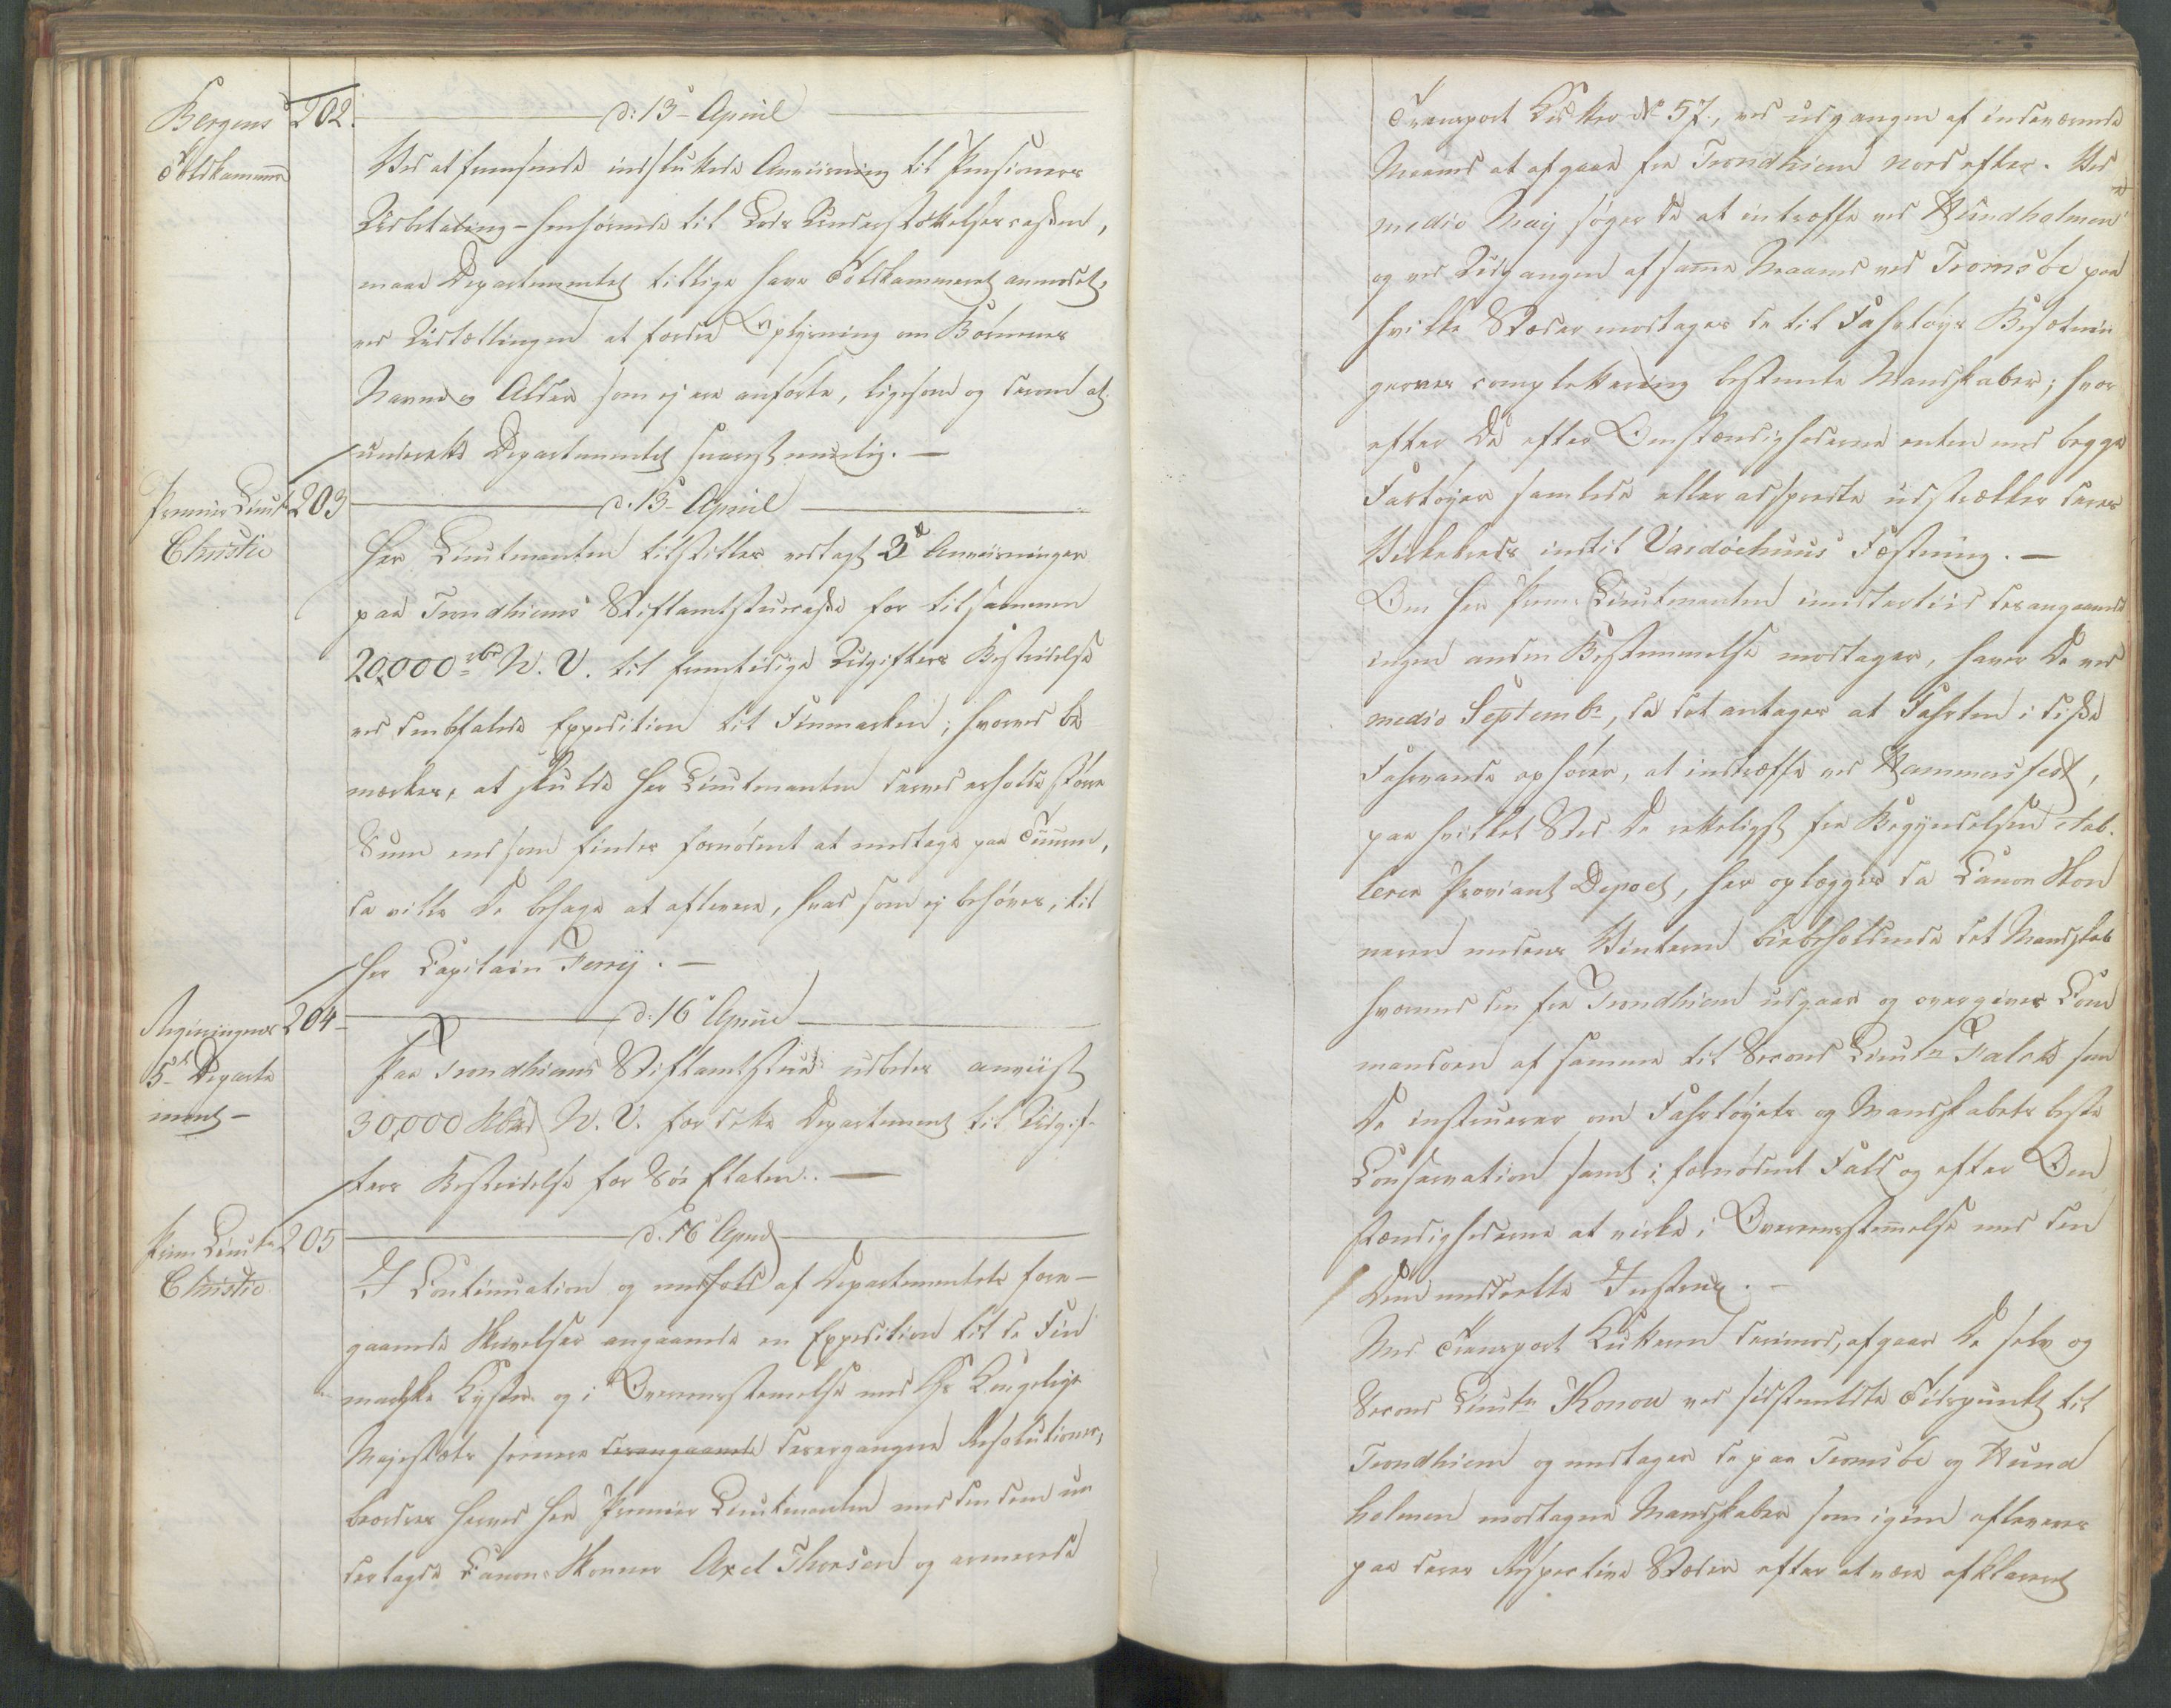 Bergens
Toldkammer
202.
d: 13 April
Ved at fremsende indsluttede Anviisning til Pensioners
Udbetaling henhørende til Lods Understøttelsescassen,
maae Departementet tillige have Toldkammeret anmodet,
ved Udtællingen at fordre Oplysning om Børnenes
Navne og Alder som ej ere anførte, ligesom og derom at
underrette Departementet snarest muelig. —
Premier Lieut
Christie
203
d. 13 April
Herr Lieutenanten tilstilles vedlagt 3de Anviisninger
paa Trondhiems Stiftamtstuecasse for tilsammen
20,000 rbd N. V. til fremtidige Udgifters Bestridelse
ved den befalede Expedition til Finmarken; hvorved be
mærkes, at skulde Herr Lieutenanten derved erholde større
Sum end som findes fornødent at medtage paa Touren,
da ville De behage at aflevere, hvad som ej behøves, til
Herr Capitain Ferry. —
Regieringens
5te Departe
ment —
204
d: 16 April
Paa Trondhiems Stiftamtstue udbedes anviist
30,000 Rbd N. V. for dette Departement til Udgif-
ters Bestridelse for Søe Etaten. —
Prem Lieutn
Christie
205
d. 16 April
I Continuation og medhold af Departementets fore-
gaaende Skrivelser angaaende en Expedition til de Fin
markske Kyster og i Overeensstemmelse med Hs Kongelige
Majestæts senere desangaaende derergangne Resolutioner,
beordres herved Herr Premier Lieutenanten med den dem un
derlagde Canon-Skonner Axel Thorsen og armerede
Transport Kutter No 57, ved udgangen af indeværende
Maaned at afgaae fra Trondhiem nord efter. Ved
medio Maij søger De at intræffe ved Hundholmen
og ved Udgangen af samme Maaned ved Tromsöe paa
hvilke Stæder modtages de til Fartøyr Besætnin
gernes complettering bestemte Mandskaber; hvor
efter De efter Omstændighederne enten med begge
Fartøyer samlede eller adspredte udstrækker deres
Virkekreds indtil Vardöehuus Fæstning. —
Om Herr Prem: Lieutenanten imidlertiid desangaaende
ingen anden Bestemmelse modtager, haver De ved
medio Septembr, da det antages at Farten i disse
Farvande ophører, at indtræffe ved Hammerfest,
paa hvilket Sted De rettelsigst fra Begyndelsen etab.
lerer Proviant Depoet, her oplægges da Canon Skon
neren under Vinteren beibeholdende det Mandskab
hvormed den fra Trondhiem udgaar og overgives Com
mandoen af samme til Second Lieutn Falck som
De instruerer om Fartøyets og Mandskabets beste
Conservation samt i fornødent Fald og efter Om
stændighederne at virke i Overeensstemmelse med den
Dem meddeelte Instrux. —
Med Transport Kutteren derimod, afgaar De selv og
Second Lieutn Konow ved sidstmeldte Tidspunkt til
Trondhiem og medtager de paa Tromsöe og Hund
holmen modtagne Mandskaber som igien afleveres
paa deres Respective Stæder efter at være afklareret